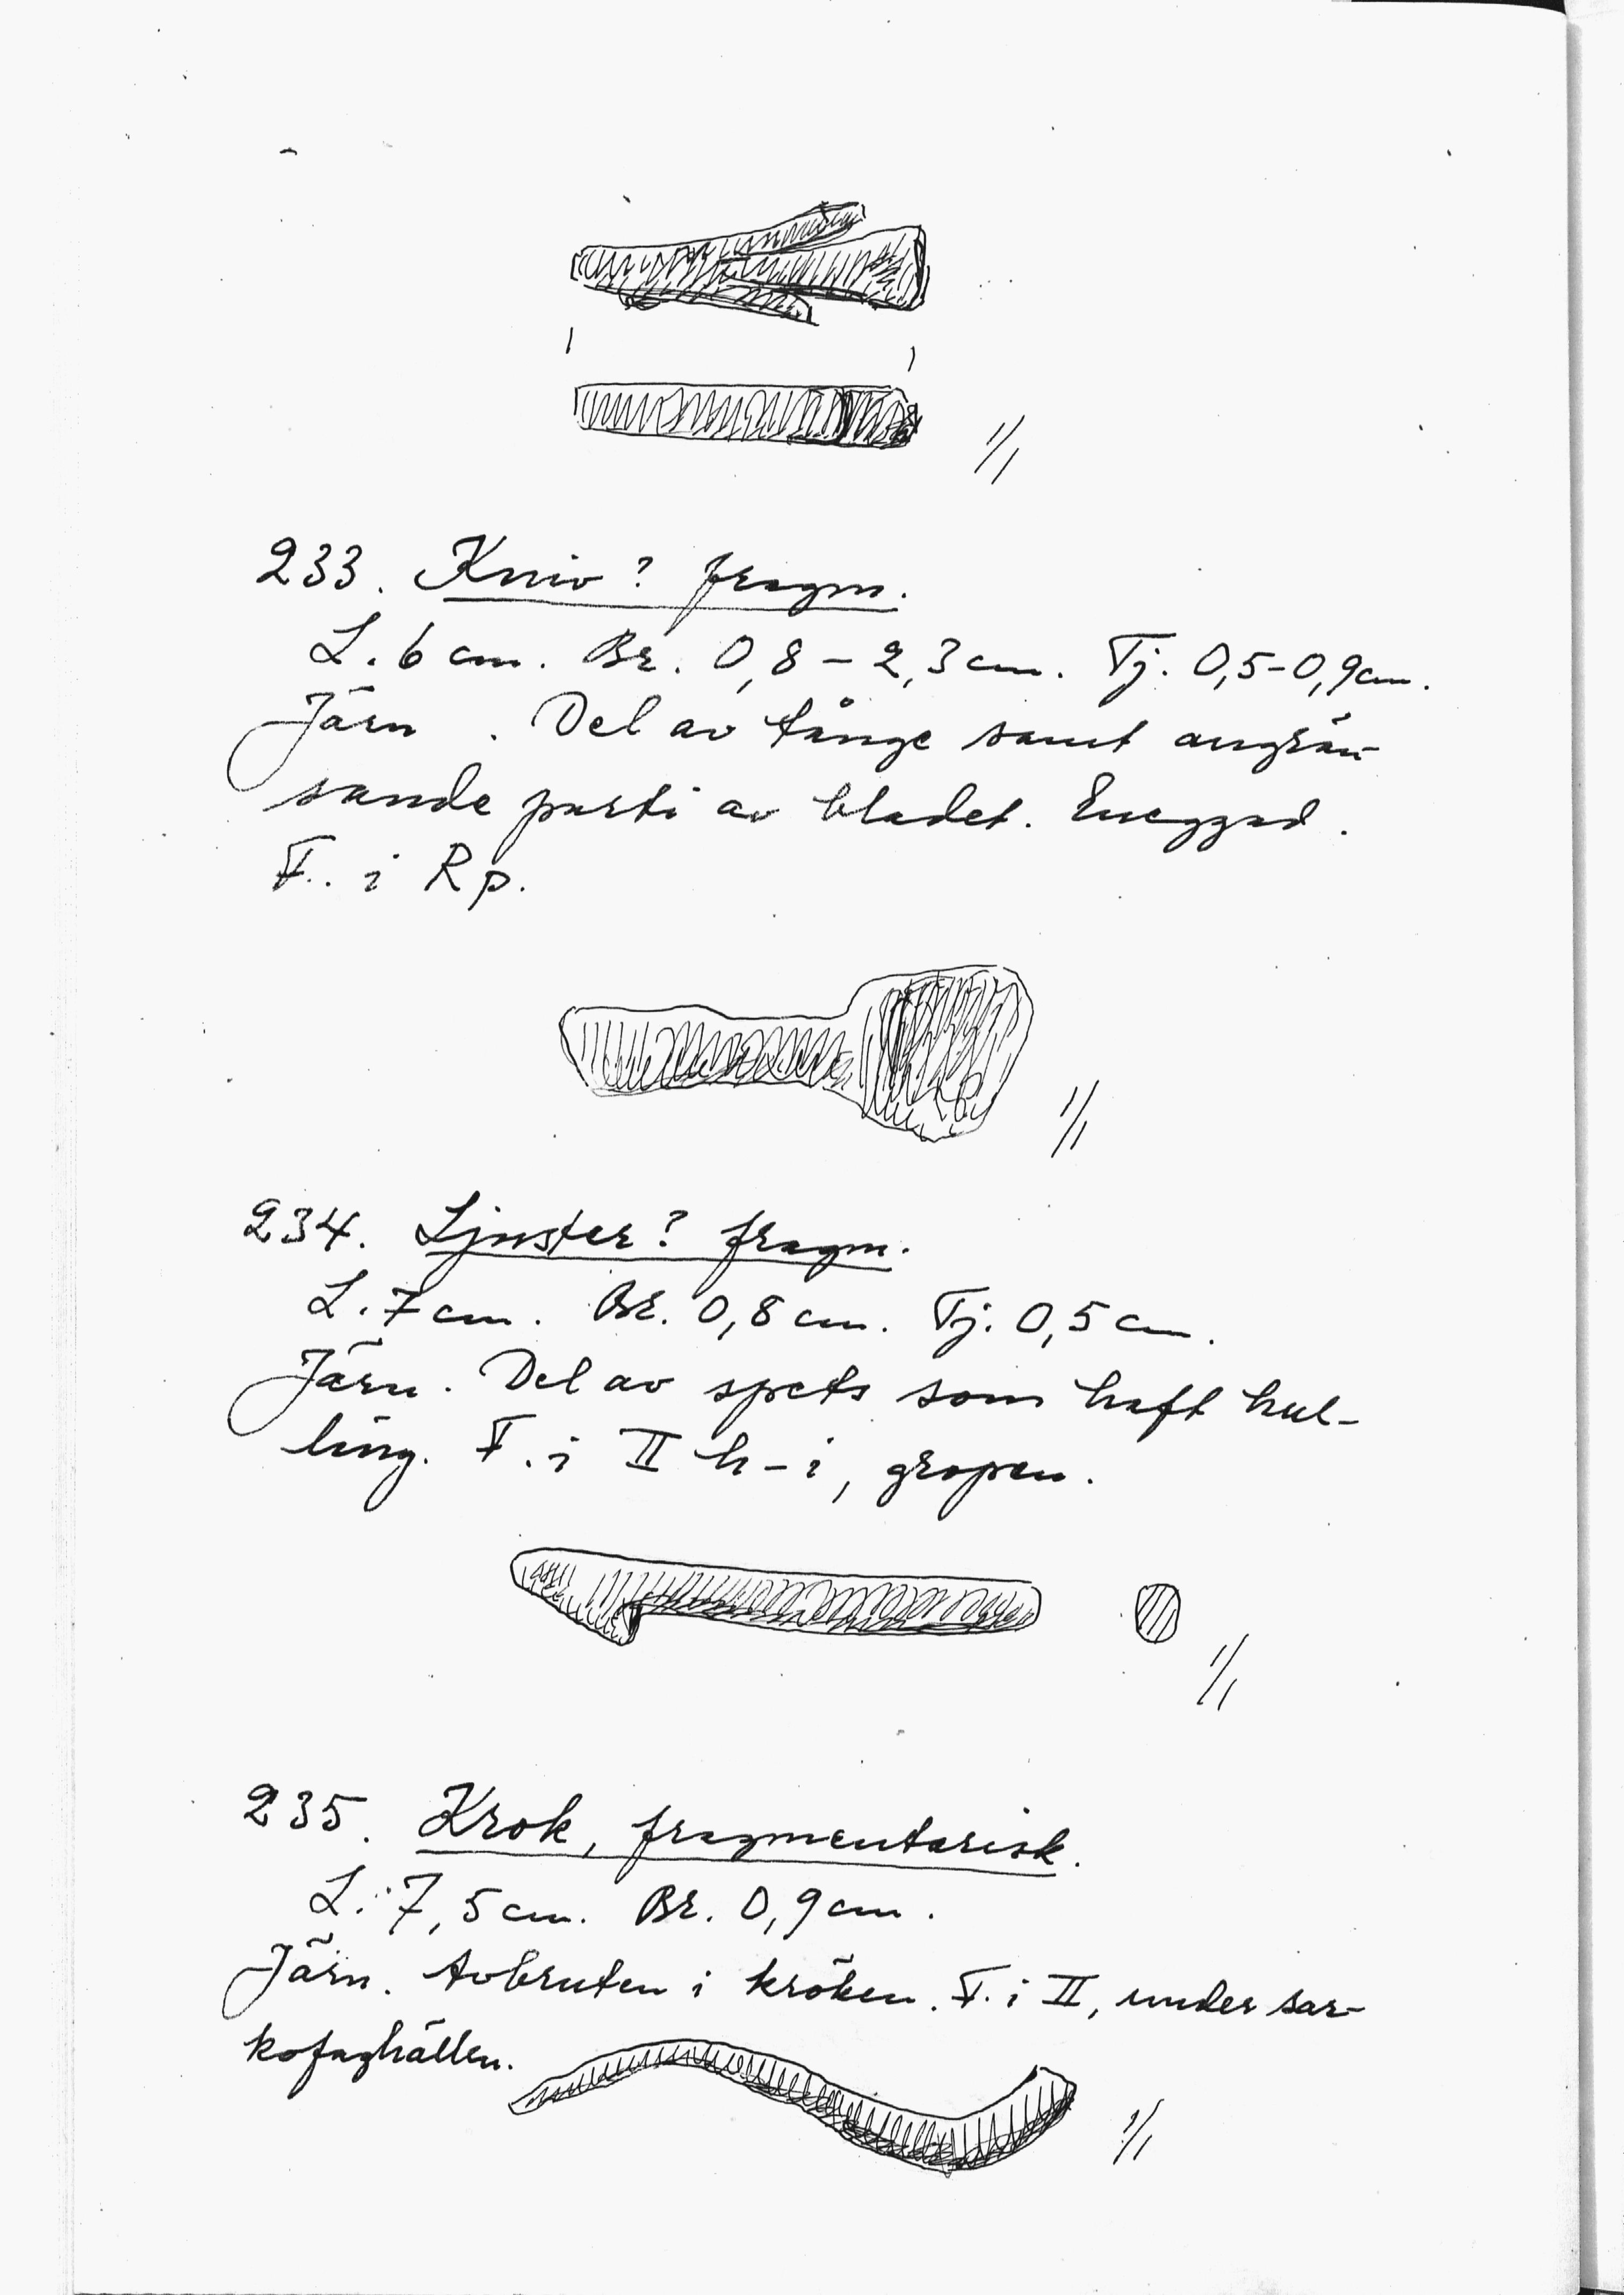 1/1
233. Kniv? fragm.
L. 6 cm. Br. 0,8 – 2,3 cm. Tj. 0,5-0,9 cm.
Järn . Del av tånge samt angrän-
sande parti av bladet. Eneggad.
F. i Rp.
1/1
234. Ljuster? fragm.
L. 7 cm. Br. 0,8 cm. Tj. 0,5 cm.
Järn. Del av spets som haft hul-
ling. F. i II h-i, gropen.
1/1
235. Krok, fragmentarisk.
L. 7,5 cm. Br. 0,9 cm.
Järn. Avbruten i kröken. F. i II, under sar-
kofaghällen.
1/1